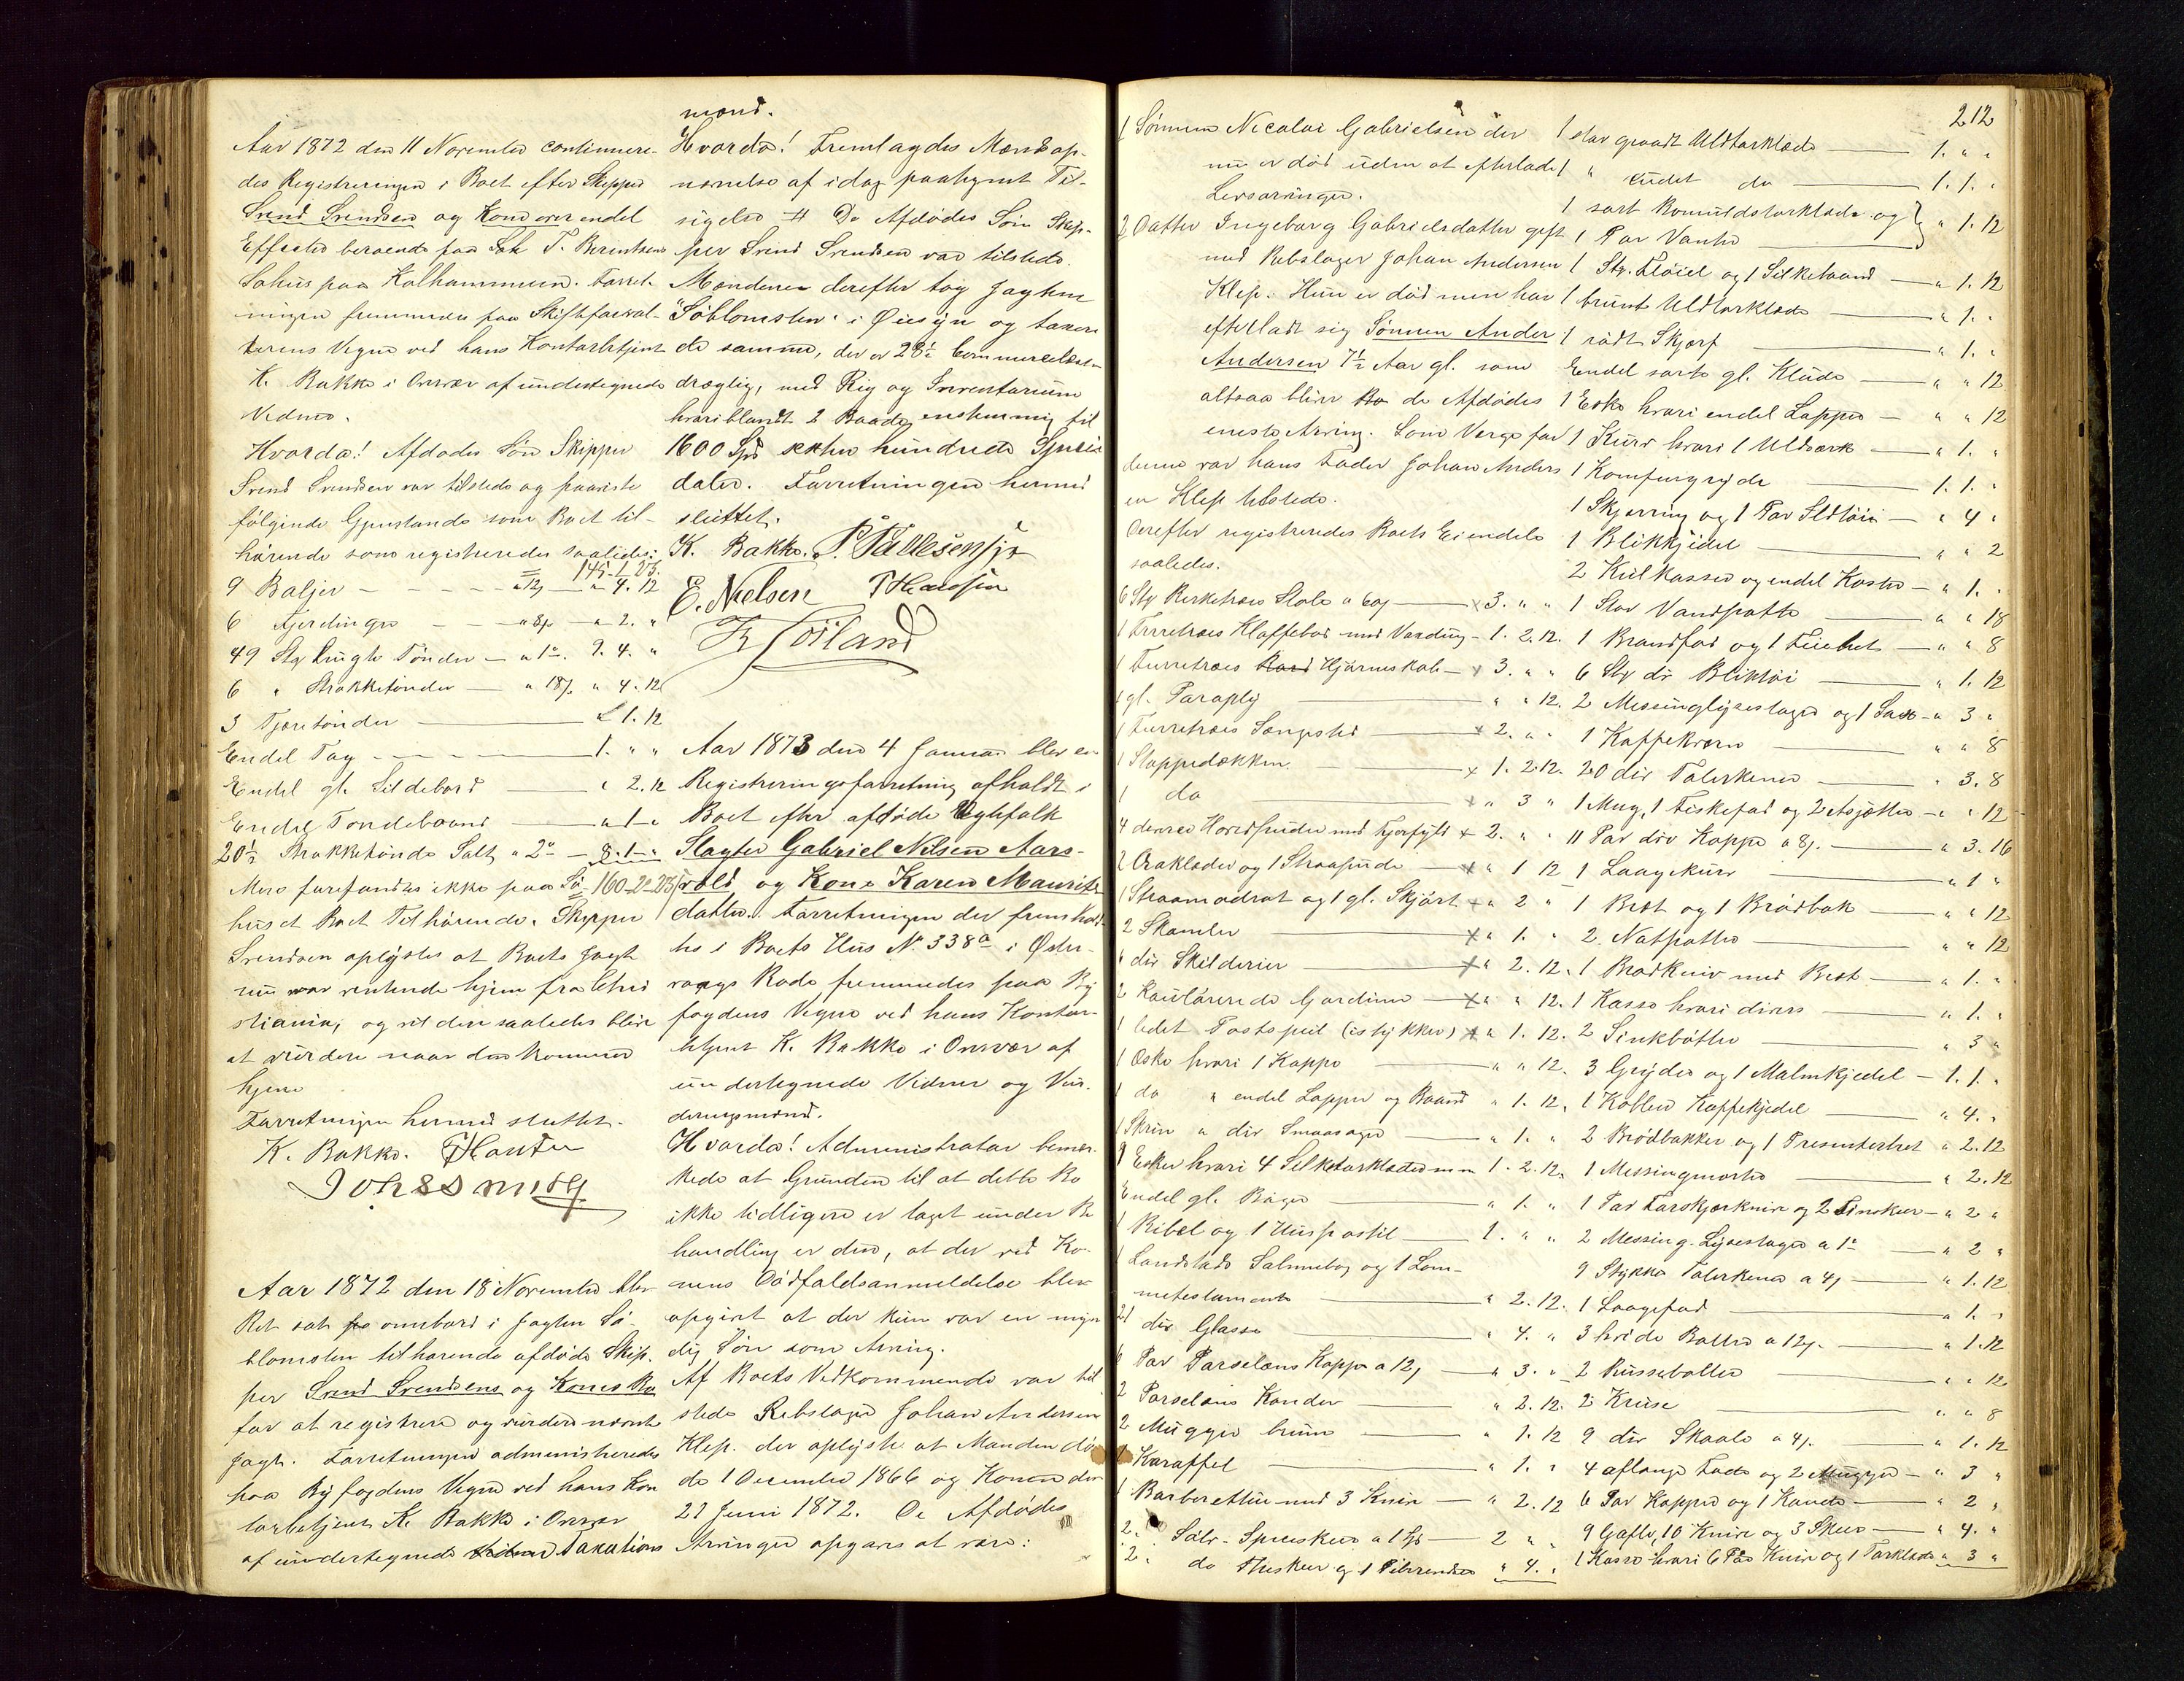 Aar 1872 den 11 November continuere-
des Registreringen i Boet efter Skipper
Svend Svendsen og Kone over endel
Effecter beroende paa Sah T. Berentsens
Søhus paa Kalhammeren. Forret-
ningen fremmedes paa Skifteforval-
terens Vegne ved hans Kontorbetjent
K. Bakke i Overvær af undertegnede
Vidner.
Hvorda! Afdødes Søn Skipper
Svend Svendsen var tilstede og paaviste
følgende Gjenstande som Boet til-
hørende som registreredes saaledes:
145-1-23.
9 Baljer - - - - a 12 — " 4. 12
6 Fjerdinger - - a 8 — " 2. "
49 Stk tungte Tønder — a 1. 9. 4. "
6 " Strakketønder — a 18 " 4. 12
3 Tjæretønder — " 1. 12
Endel Tag - - - - 1. " "
Endel gl. Sildebord — " 2. 12
Endel Tøndebaand — " 1 "
20½ Strakketønde Salt a 2 — 8. 1 "
Mere forefandtes ikke paa Sø- 160-2-23
huset Boet Tilhørende. Skipper
Svendsen oplyste at Boets Jagt
nu var ventende hjem fra Chri
stiania, og vil den saaledes blive
at vurdere naar den kommer
hjem
Forretningen hermed sluttet.
K. Bakke.
Aar 1872 den 18 November blev
Ret sat ombord i Jagten Sø-
blomsten tilhørende afdøde Skip-
per Svend Svendsens og Kones Bo
for at registrere og vurdere nævnte
Jagt. Forretningen administreredes
paa Byfogdens Vegne ved hans Kon
torbetjent K. Bakke i Overvær
af undertegnede Taxations
mænd.
Hvorda! Fremlagdes Mændsop-
nævnelse af idag paategnet Til-
sigelse # De Afdødes Søn Skip-
per Svend Svendsen var tilstede.
Mændene derefter tog Jagten
"Søblomsten" i Øiesyn og taxere
de samme, der er 28½ Commercelæster
drægtig, med Rig og Inventarium
hvoriblandt 2 Baade, enstemmig til
1600 Spd sexten hundrede Specie
daler. Forretningen hermed
sluttet.
K. Bakke. P. Pallesen
E. Nielsen T Hansen
Aar 1873 den 4 Januar blev en
Registreringsforretning afholdt i
Boet efter afdøde Ægtefolk
Slagter Gabriel Nilsen Aars-
vold og Kone Karen Maurits
datter. Forretningen der fremhold-
tes i Boets Hus No 338a i Øster-
vaags Rode fremmedes paa By
fogdens Vegne ved hans Kontor-
betjent K. Bakke i Overvær af
undertegnede Vidner og Vur-
deringsmænd.
Hvorda! Administrator bemær-
kede at Grunden til at dette Bo
ikke tidligere er taget under Be
handling er den, at der ved Ko-
nens Dødfaldsanmeldelse blev
opgivt at der kun var en myn
dig Søn som Arving.
Af Boets Vedkommende var til
stede Rebslager Johan Andersen
Klep. der oplyste at Manden dø
de 1 December 1866 og Konen den
27 Juni 1872. De Afdødes
Arvinger opgaves at være:
212
1 Sønnen Nicolai Gabrielsen der
nu er død uden at efterlade
Livsarvinger.
2 Datter Ingeborg Gabrielsdatter gift
med Rebslager Johan Andersen
Klep. Hun er død men har
efterladt sig Sønnen Ander
Andersen 7½ Aar gl. som
altsaa bliver de Afdødes
eneste Arving. Som Verge for
denne var hans Fader Johan Anders
en Klep tilstede.
Derefter registreredes Boets Eiendele
saaledes.
6 Stk Birketræs Stole a 60 — x 3. " "
1 Furretræs Klaffebord med Voxdug - 1. 2. 12.
1 Furretræs Hjørneskab — x 3. " "
1 gl. Paraply — " " 12.
1 Furretræs Sengested — x 2. " "
1 Stoppedækken — x 1. 2. 12.
1 do — x " 3 "
4 diverse Hovedpuder med Fjerfyld x 2. " "
2 Craklader og 1 Straapude — x " 1 12
1 Straamadrat og 1 gl. Skjørt x " 2 "
2 Skamler — x " 1. "
6 div Skilderier — x " 2. 12.
2 Roulerende Gardiner — x " " 12.
1 lidet Postspeil (istykker) x " 1. 12.
1 Eske hvori 1 Kappe — " " 12.
1 do " endel Lapper og Baand " 1. 12.
1 Skrin " div Smaasager — " 1. "
9 Esker hvori 4 Silketørklæder m m 1. 2. 12.
Endel gl. Bøger — " 1. "
1 Bibel og 1 Huspostil — 1. " "
1 Landstads Salmebog og 1 Lom-
metestamente — " 2. 12.
21 div Glasse — " 4. "
6 Par Porselæns Kopper a 12 — " 3. "
2 Porselæns Kander — " 2. 12.
2 Mugger brune — " 1. 12
1 Karaffel — " 1. "
1 Barberettui med 3 Knive — " 2. 12
2. Sølv-Spiseskeer a 1 Spd — 2 " "
2. do Theskeer og 1 " 4. "
1 stor graadt Uldtørklæde — 1. " "
1 " lidet do — 1. 1. "
1 sort Bomuldstørklæde og
1 Par Vanter — " 1. 12
1 Stk. Fløiel og 1 Silkebaand — " 1. 12
1 brunt Uldtørklæde — " 1. "
1 rødt Skjerf — " 1. "
Endel sorte gl. Klude — " " 12
1 Eske hvori endel Lapper — " " 12
1 Kurv hvori 1 Uldsærk — " 1. "
1 Komfurgryde — 1. 1. "
1 Skjerring og 1 Par Ildtøi — " 4 "
1 Blikkjedel — " " 2
2 Kulkasser og endel Koster — " 1. "
1 Stor Vandpotte — " " 18
1 Brandfad og 1 Feiebret — " " 8
6 Stk div Bliktøi — " 1. 12
2 Messinglysestager og 1 Sax - " 3 "
1 Kaffekværn — " " 8
20 div Talerkener — " 3. 8
1 Mug, 1 Fiskefad og 2 Asjetter — " " 12
11 Par div Kopper a 8 — " 3. 16
1 Laagekurv — " 1 "
1 Bret og 1 Brødbak — " " 12
2 Natpotter — " " 12
1 Brødkniv med Bret — " 1. "
1 Kasse hvori divers — " 1. "
2 Sinkbøtter — " 3 "
3 Gryder og 1 Malmkjedel — 1. 1. "
1 Kobber Kaffekjedel — " 4. "
2 Brødbakker og 1 Presenterbret " 2. 12
1 Messingmorter — " 2. 12
1 Par Forskjærknive og 2 Tinskeer — " 2 "
2 Messing-Lysestager a 1 — " 2 "
9 Stykke Talerkener a 4 — " 1. 12
1 Laagefad — " 1. "
3 hvide Boller a 12 — " 1. 12
2 Russeboller — " " 12
2 Kruse — " " 8
9 div Skaale a 4 — " 1. 12
4 aflange Fade og 2 Mugger — " 3 "
6 Par Kopper og 1 Kande — " 2 "
9 Gafler, 10 Knive og 3 Skeer — " 4. "
1 Kasse hvori 6 Par Knive og 1 Tørklæde " 3 "